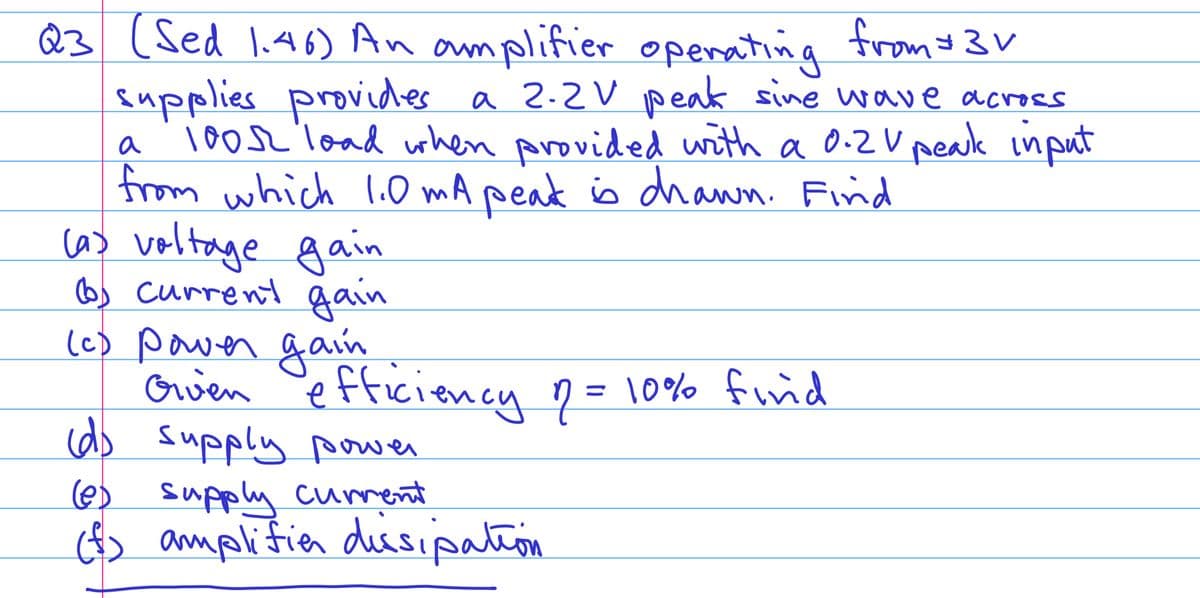 Q3 (Sed 1.46) An amplifier operating from ±3V
supplies provides a 2.2V peak sine wave across
a 100Ω load when provided with a 0.2V peak input
from which 1.0 mA peak is drawn. Find
(a) voltage gain
(b) current gain
(c) power gain
Given efficiency η = 10% find
(d) supply power
(e) supply current
(f) amplifier dissipation